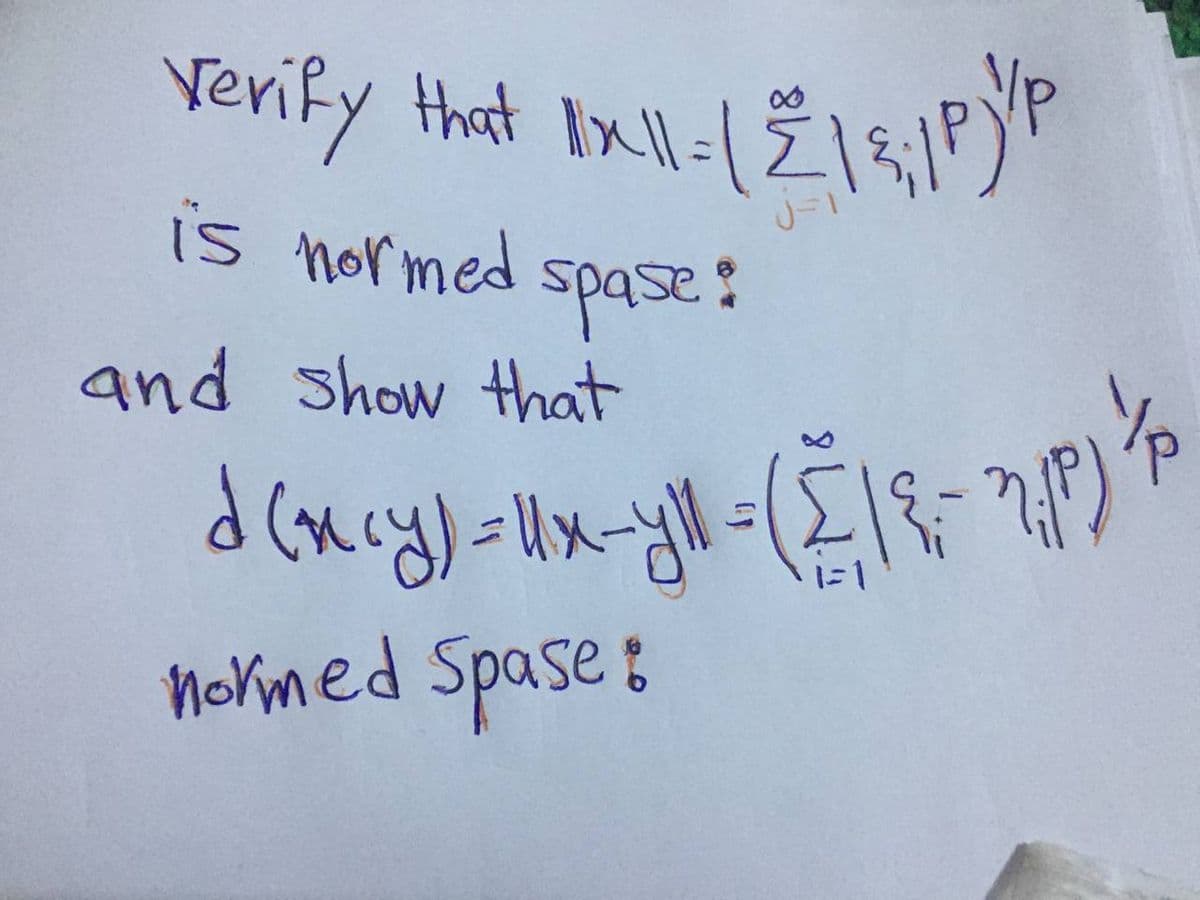 Verify that ||x|| = ( ∞ Σ j=1 | ξj |^p )^1/p
is normed spase :
and show that
d (x,y) = ||x-y|| = ( ∞ Σ i=1 | ξi - ηi |^p )^1/p
normed spase :